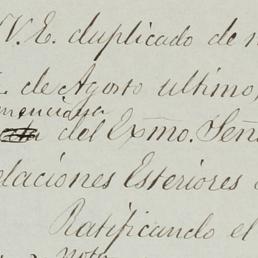 V. E. duplicado de
de Agosto ultimo,
del Exmo. Señ
elaciones Esteriores
Ratificando el
nota